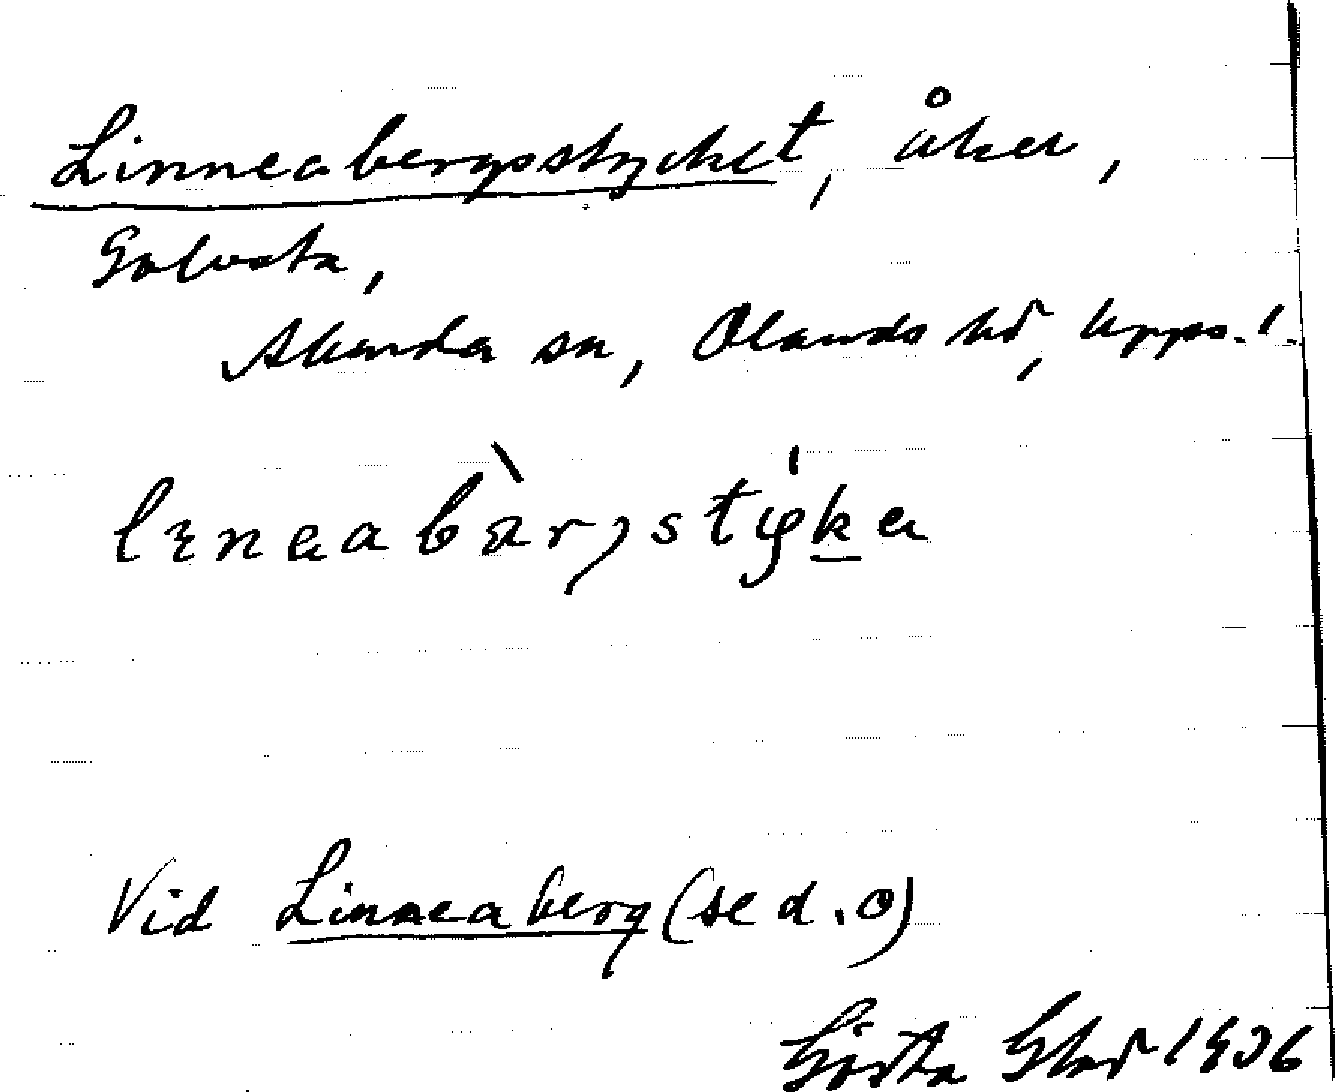 Linneabergsstycket, åker,
Golvsta,
Alunda sn, Olands hd, Upps. l.
lɪneabær̀jstýkɐ
Vid Linneaberg (se d. o)
Gösta 1936